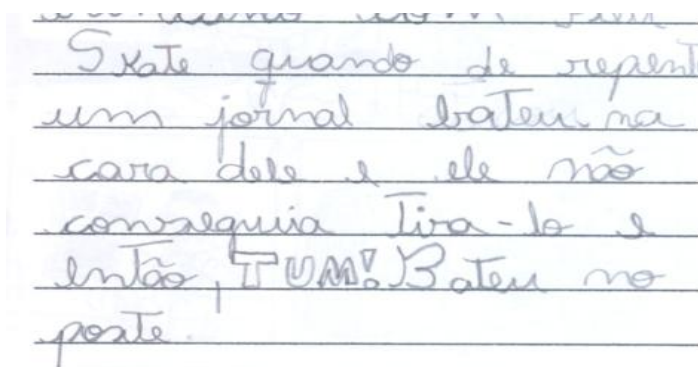 Skate quando de repent
um jornal bateu na
cara dele e ele não
conseguia tira-lo e
então, TUM! Bateu no
poste.